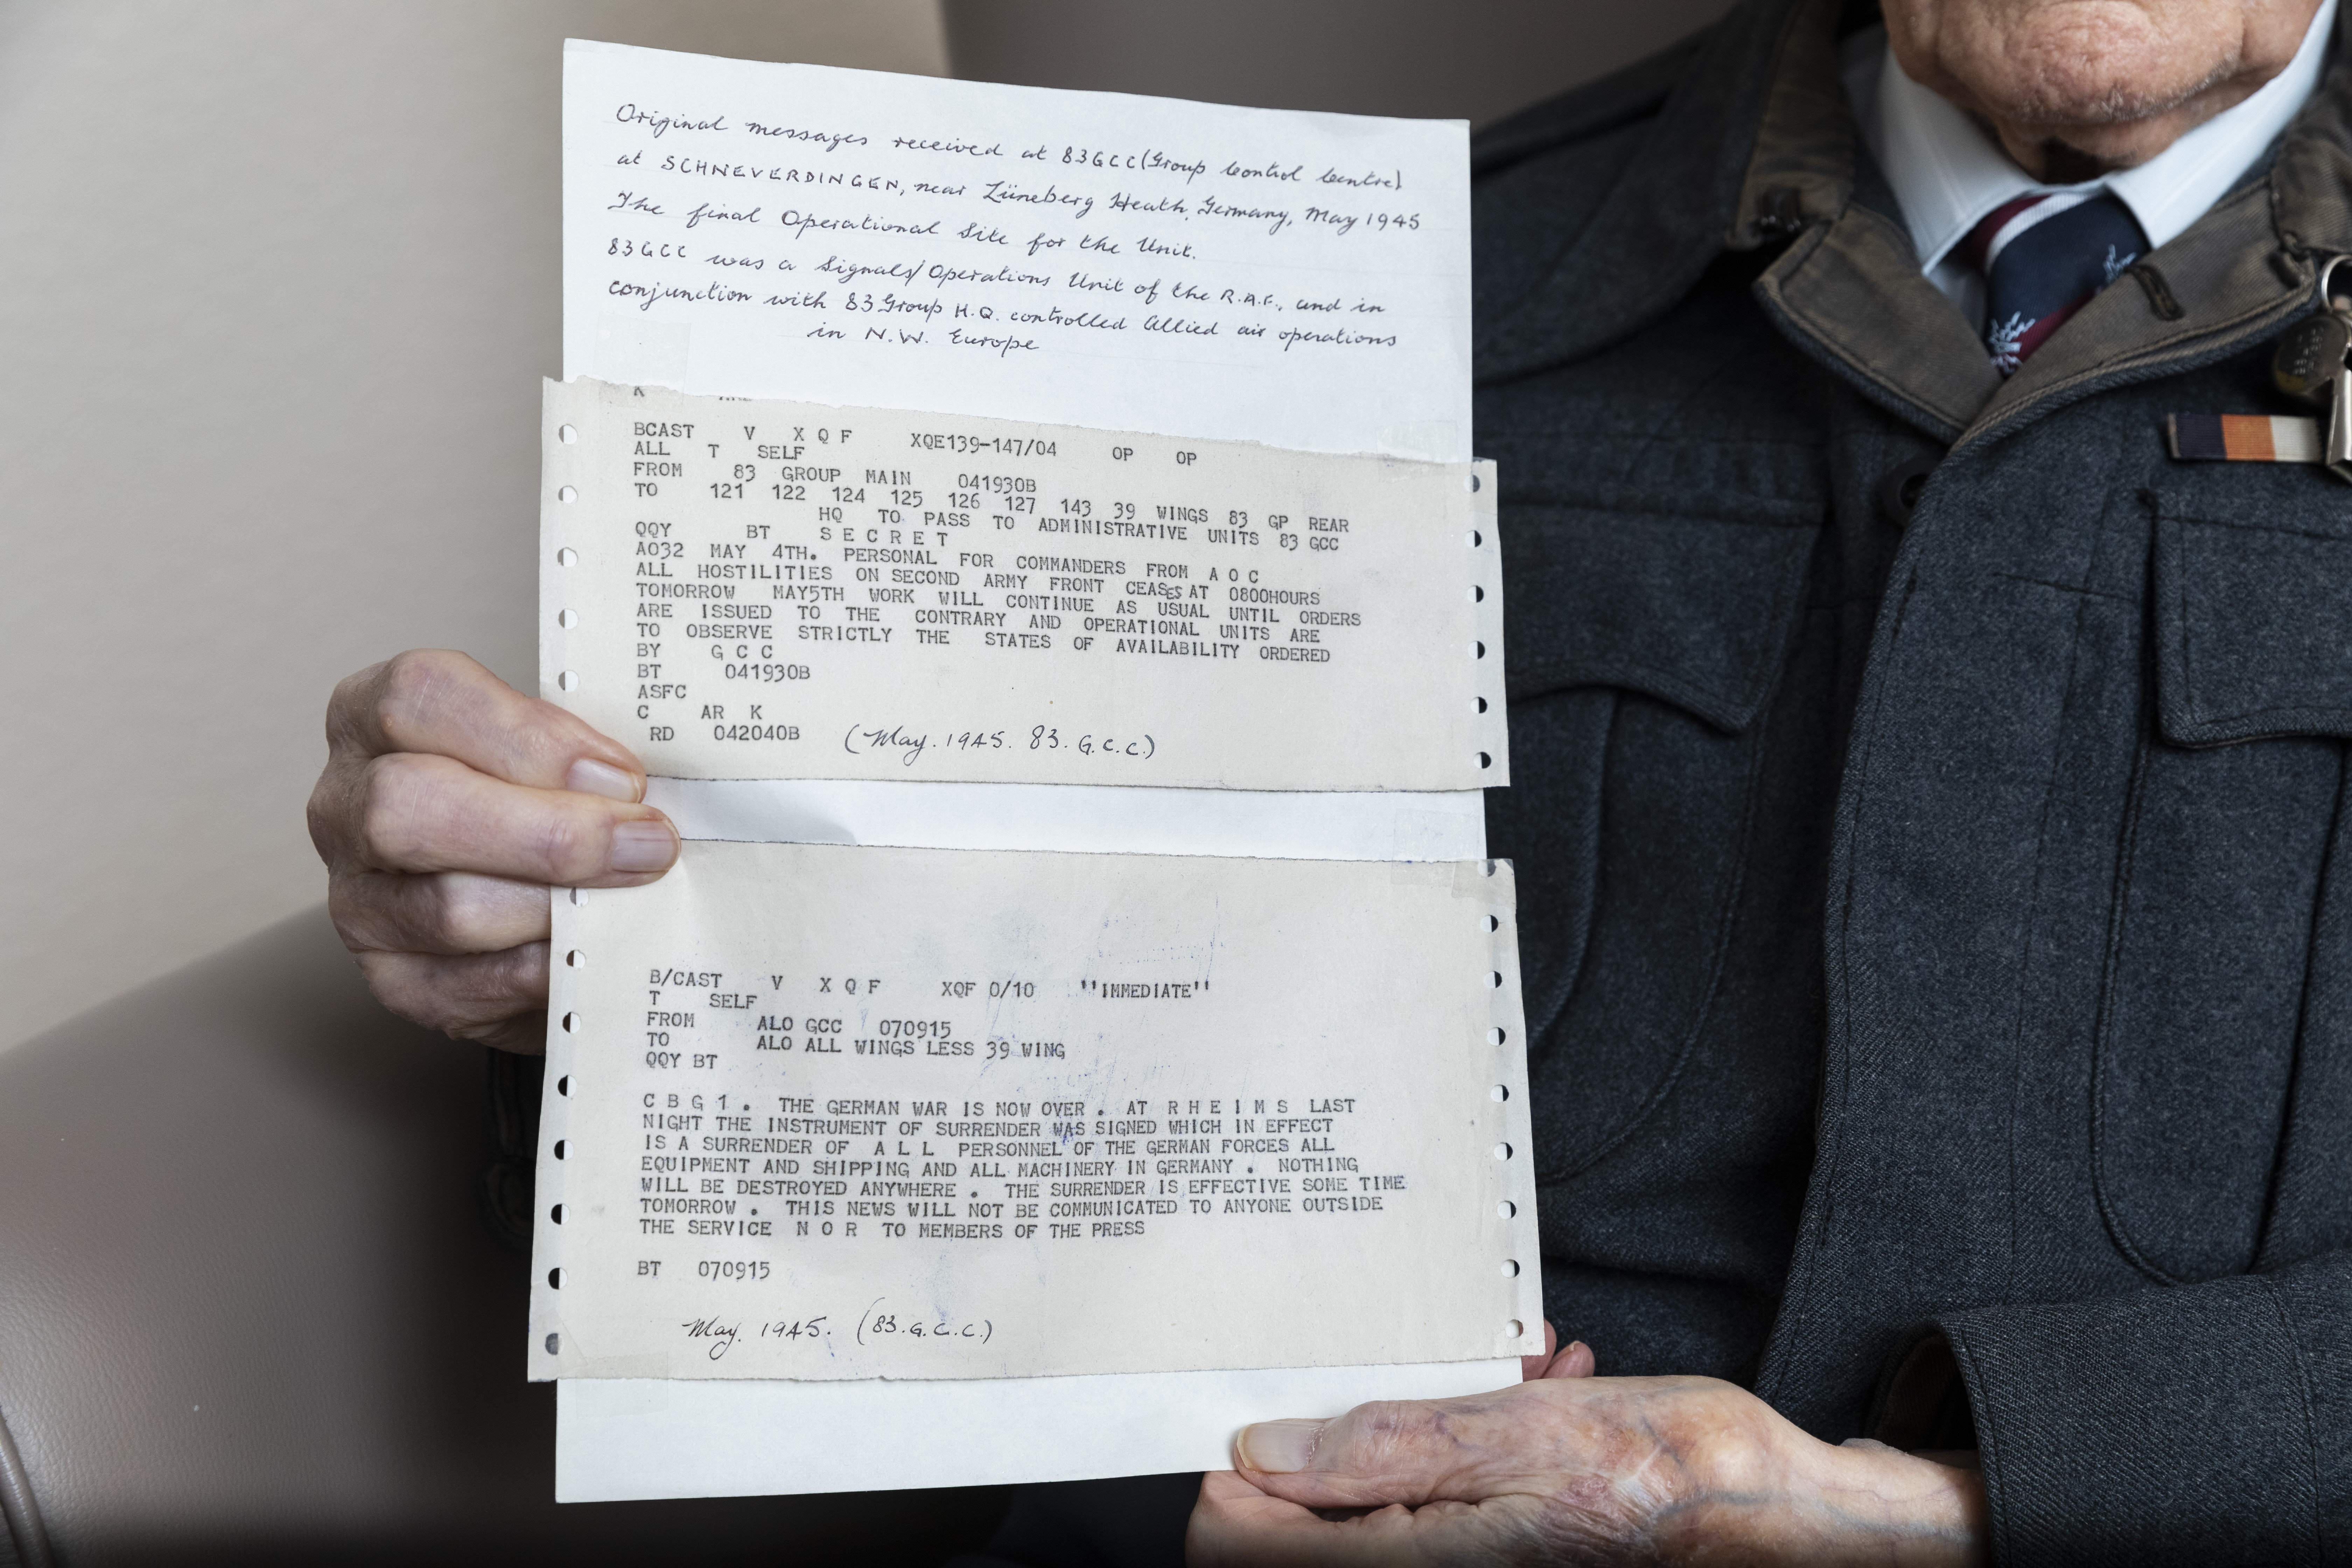 Original messages received at 83GCC (Group Control Centre)
at SCHNEVERDINGEN, near Lüneberg Heath, Germany, May 1945
The final Operational Site for the Unit.
83GCC was a Signals/Operations Unit of the R.A.F., and in
conjunction with 83 Group H.Q. controlled Allied air operations
in N.W. Europe
K
BCAST V X Q F XQE139-147/04 OP OP
ALL T SELF
FROM 83 GROUP MAIN 041930B
TO 121 122 124 125 126 127 143 39 WINGS 83 GP REAR
HQ TO PASS TO ADMINISTRATIVE UNITS 83 GCC
QQY BT S E C R E T
AO32 MAY 4TH. PERSONAL FOR COMMANDERS FROM A O C
ALL HOSTILITIES ON SECOND ARMY FRONT CEASES AT 0800HOURS
TOMORROW MAY5TH WORK WILL CONTINUE AS USUAL UNTIL ORDERS
ARE ISSUED TO THE CONTRARY AND OPERATIONAL UNITS ARE
TO OBSERVE STRICTLY THE STATES OF AVAILABILITY ORDERED
BY G C C
BT 041930B
ASFC
C AR K
RD 042040B (May. 1945. 83. G.C.C.)
B/CAST V X Q F XQF 0/10 ''IMMEDIATE''
T SELF
FROM ALO GCC 070915
TO ALO ALL WINGS LESS 39 WING
QQY BT
C B G 1 . THE GERMAN WAR IS NOW OVER . AT R H E I M S LAST
NIGHT THE INSTRUMENT OF SURRENDER WAS SIGNED WHICH IN EFFECT
IS A SURRENDER OF A L L PERSONNEL OF THE GERMAN FORCES ALL
EQUIPMENT AND SHIPPING AND ALL MACHINERY IN GERMANY . NOTHING
WILL BE DESTROYED ANYWHERE . THE SURRENDER IS EFFECTIVE SOME TIME
TOMORROW . THIS NEWS WILL NOT BE COMMUNICATED TO ANYONE OUTSIDE
THE SERVICE N O R TO MEMBERS OF THE PRESS
BT 070915
May. 1945. (83.G.C.C.)